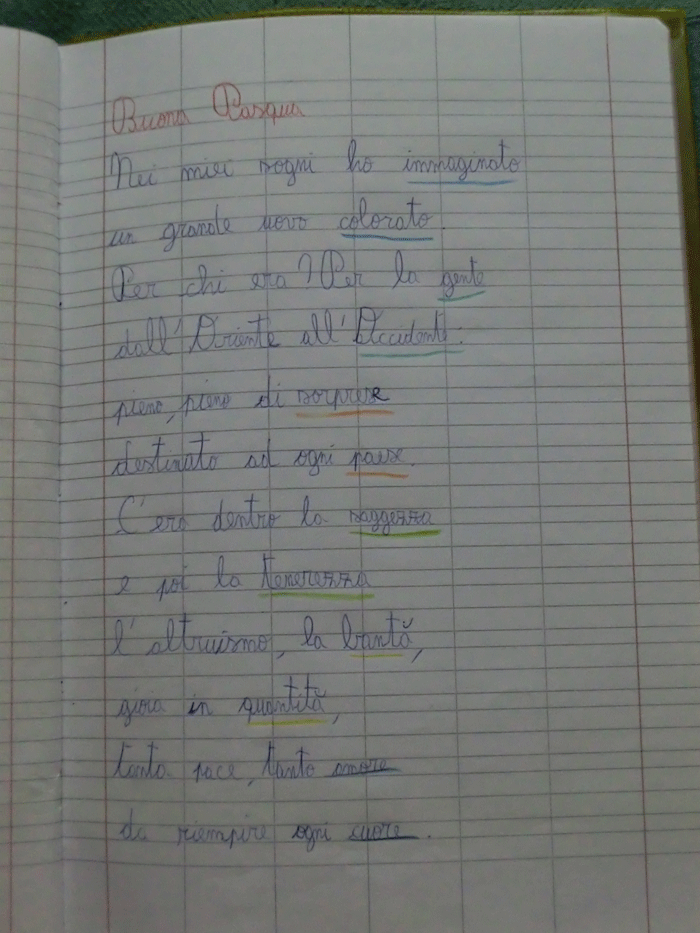 Buona Pasqua
Nei miei sogni ho immaginato
un grande uovo colorato.
Per chi era? Per la gente
dall'Oriente all'Occidente:
pieno, pieno di sorprese
destinato ad ogni paese.
C'era dentro la saggezza
e poi la tenerezza
l'altruismo, la bontà,
gioia in quantità,
tanta pace, tanto amore
da riempire ogni cuore.